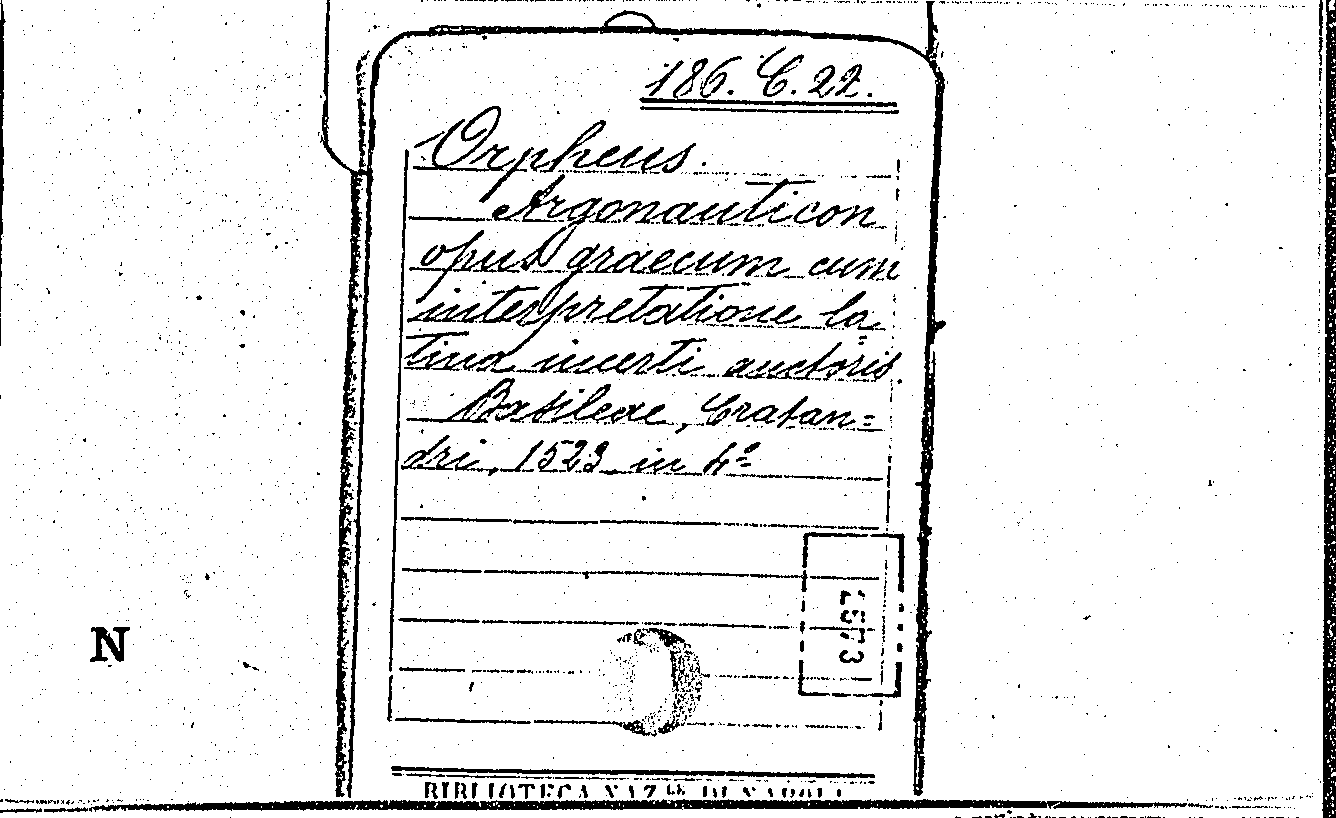 186. C. 22.
Orpheus.
Argonauticon
opus graecum cum
interpretatione la=
tina incerti auctoris.
Basileae, Cratan=
dri, 1523 in 4º
N
BIBLIOTECA NAZ.LE DI NAPOLI